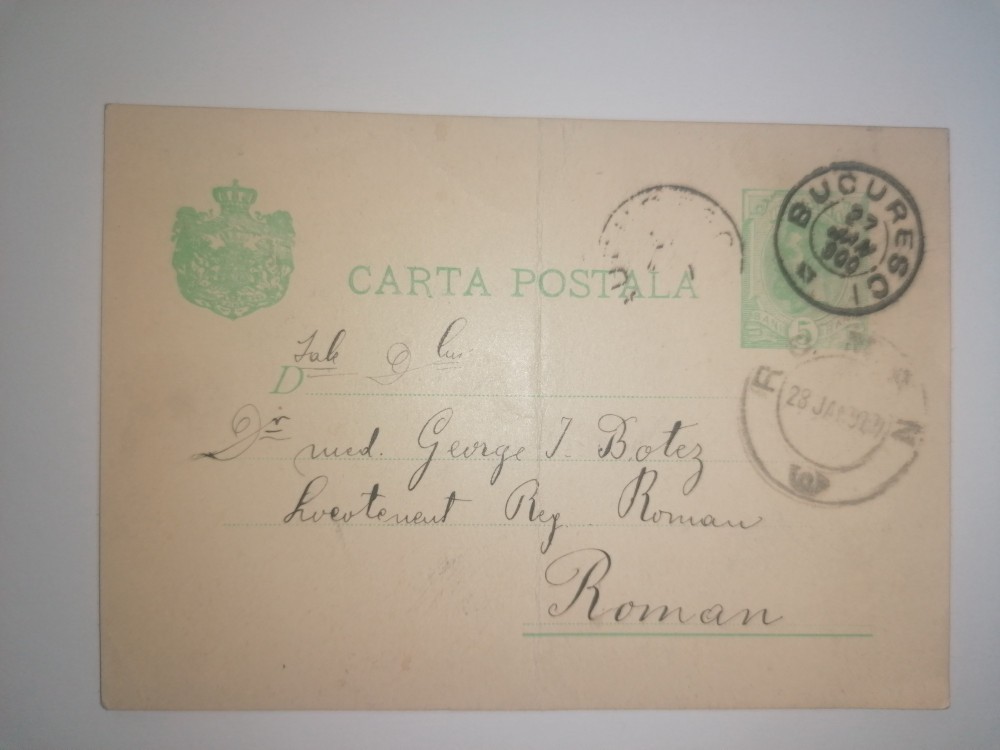 CARTA POSTALA
BUCURESCI
27 JAN 900
5 BANI
ROMAN
28 JAN 900
D
D lui
Dr med. George I. Botez
Locotenent Reg. Roman
Roman